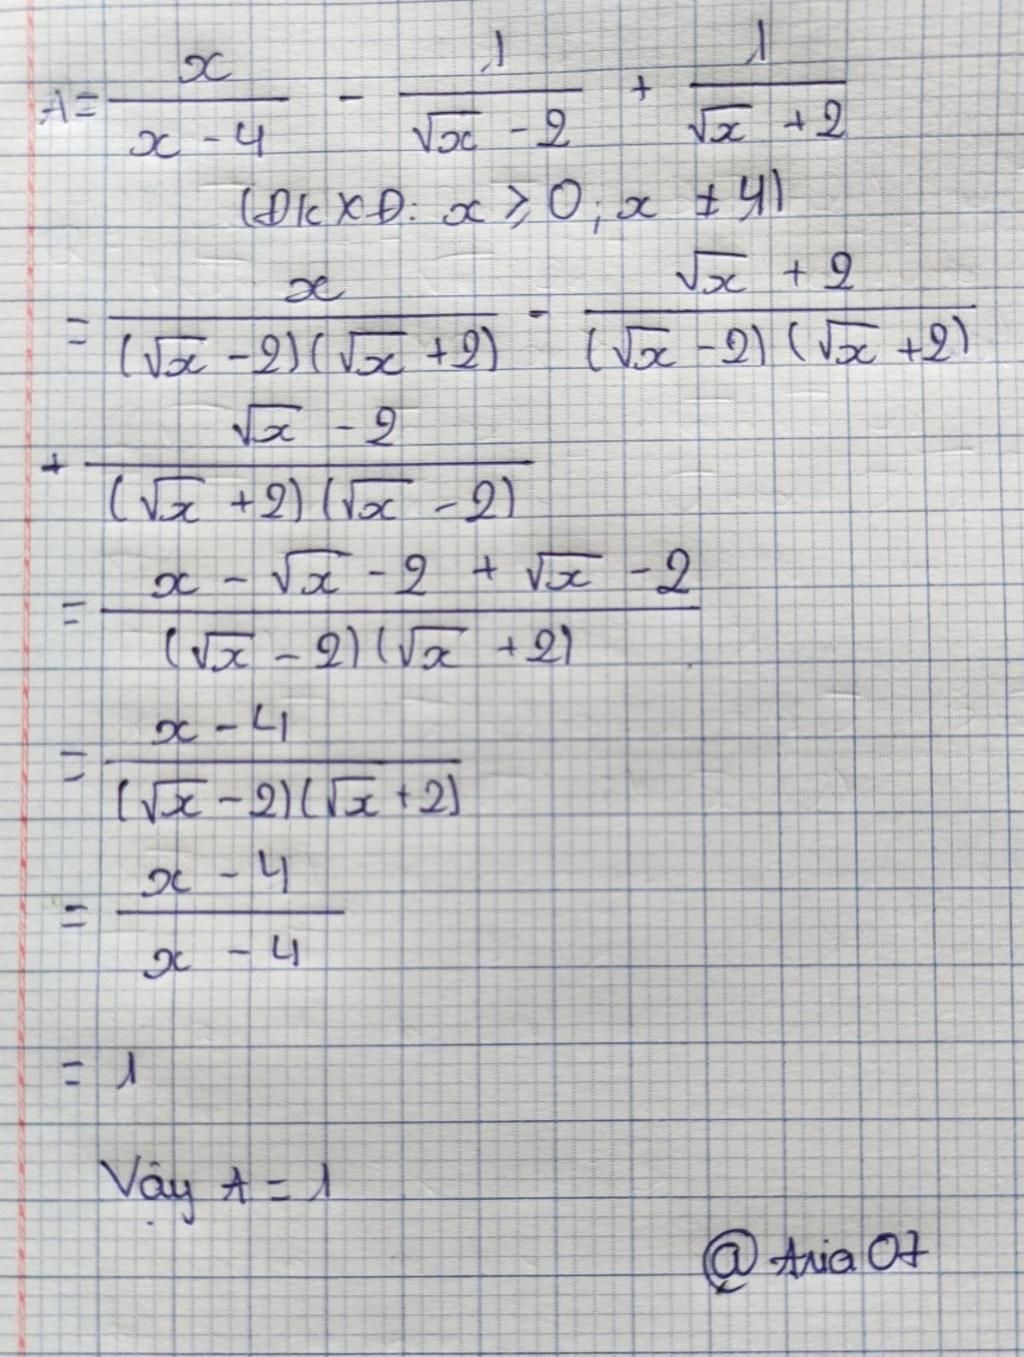 A = x/(x - 4) - 1/(√x - 2) + 1/(√x + 2)
(ĐKXĐ: x ≥ 0; x ≠ 4)
= x/((√x - 2)(√x + 2)) - (√x + 2)/((√x - 2)(√x + 2))
+ (√x - 2)/((√x + 2)(√x - 2))
= (x - √x - 2 + √x - 2)/((√x - 2)(√x + 2))
= (x - 4)/((√x - 2)(√x + 2))
= (x - 4)/(x - 4)
= 1
Vậy A = 1
@Aria07